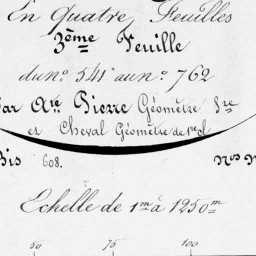 En Quatre Feuilles
3ème Feuille
du n° 541 au n° 762
Par Ate Pierre Géomètre Ire
et Cheval Géomètre de 1re cl
Bis 608. Nos
Echelle de 1m à 1250m
50 75 100